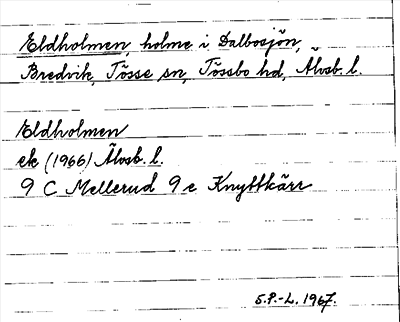 Eldholmen, holme i Dalbosjön,
Bredvik, Tösse sn, Tössbo hd, Älvsb. l.
Eldholmen
ek (1966) Älvsb. l.
9 C Mellerud 9 e Knyttkärr
S.P.-L. 1967.